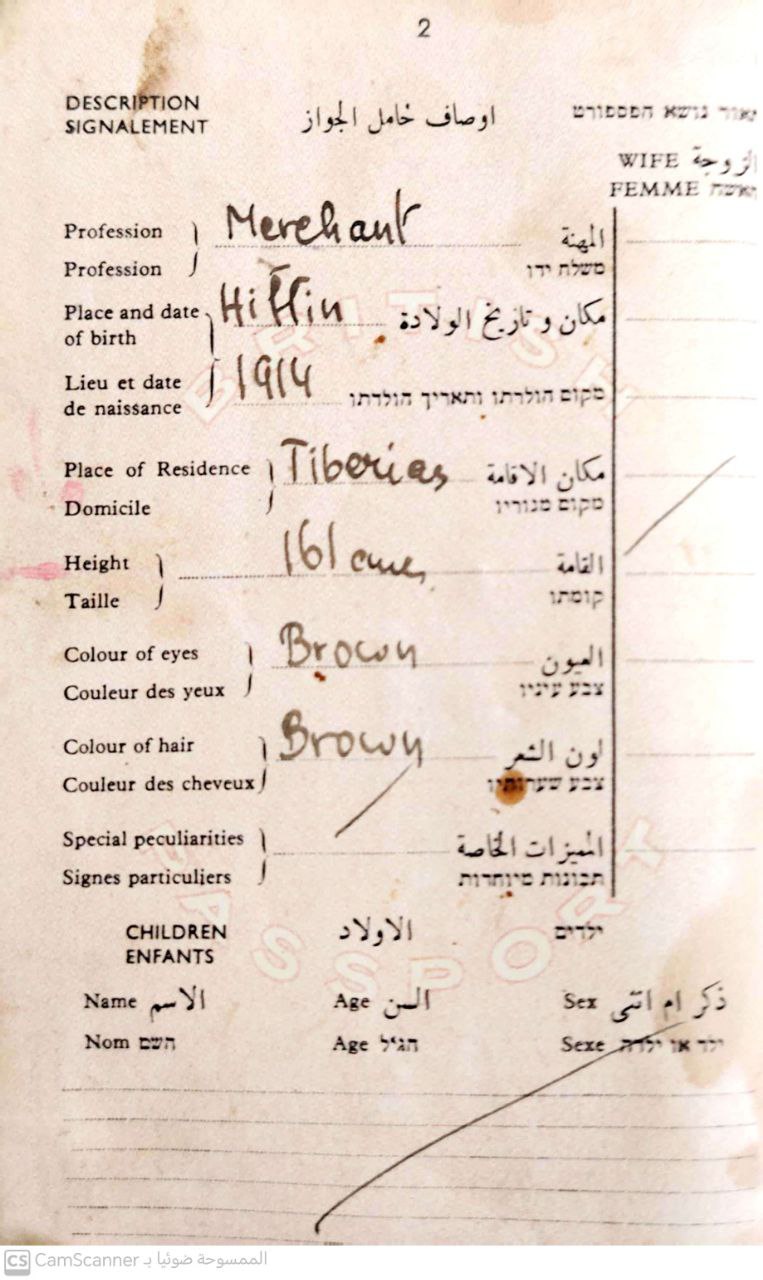 2
DESCRIPTION
SIGNALEMENT
اوصاف حامل الجواز
תאור נושא הפספורט
WIFE الزوجة
FEMME האשה
Profession Merchant المهنة
Profession משלח ידו
Place and date of birth Hittin مكان و تاريخ الولادة
Lieu et date de naissance 1914 מקום הולדתו ותאריך הולדתו
Place of Residence Tiberias مكان الاقامة
Domicile מקום מגוריו
Height 161 cms القامة
Taille קומתו
Colour of eyes Brown العيون
Couleur des yeux צבע עיניו
Colour of hair Brown لون الشعر
Couleur des cheveux צבע שערותיו
Special peculiarities المميزات الخاصة
Signes particuliers תכונות מיוחדות
BRITISH
PASSPORT
CHILDREN الاولاد ילדים
ENFANTS
Name الاسم Age السن Sex ذكر ام انثى
Nom השם Age הגיל Sexe ילד או ילדה
CS CamScanner الممسوحة ضوئيا بـ